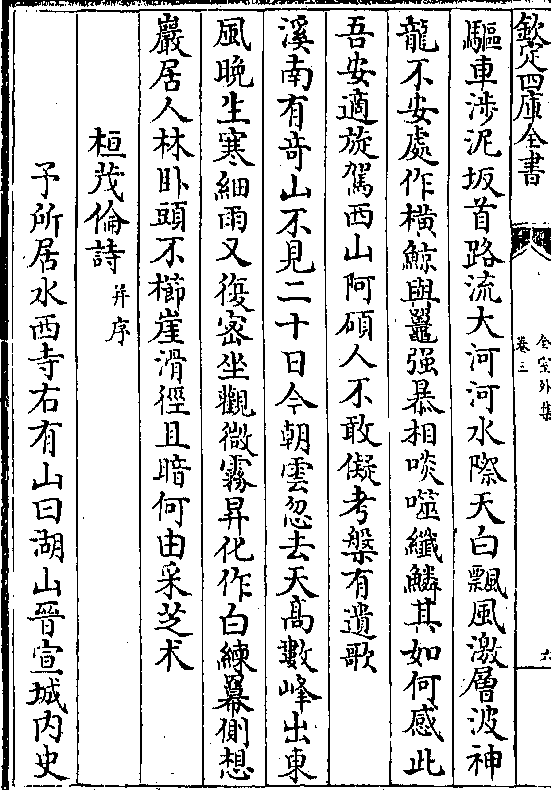 欽定四庫全書
全室外集
卷三
六
驅車涉泥坂首路流大河河水際天白飄風激層波神
龍不安處作橫鯨與鼉强暴相啖噬纖鱗其如何感此
吾安適旋駕西山阿碩人不敢儗考槃有遺歌
溪南有奇山不見二十日今朝雲忽去天髙數峰出東
風晩生寒細雨又復宻坐觀微霧昇化作白練羃側想
巖居人林卧頭不櫛崖滑徑且暗何由采芝术
桓茂倫詩并序
予所居水西寺右有山曰湖山晉宣城内史